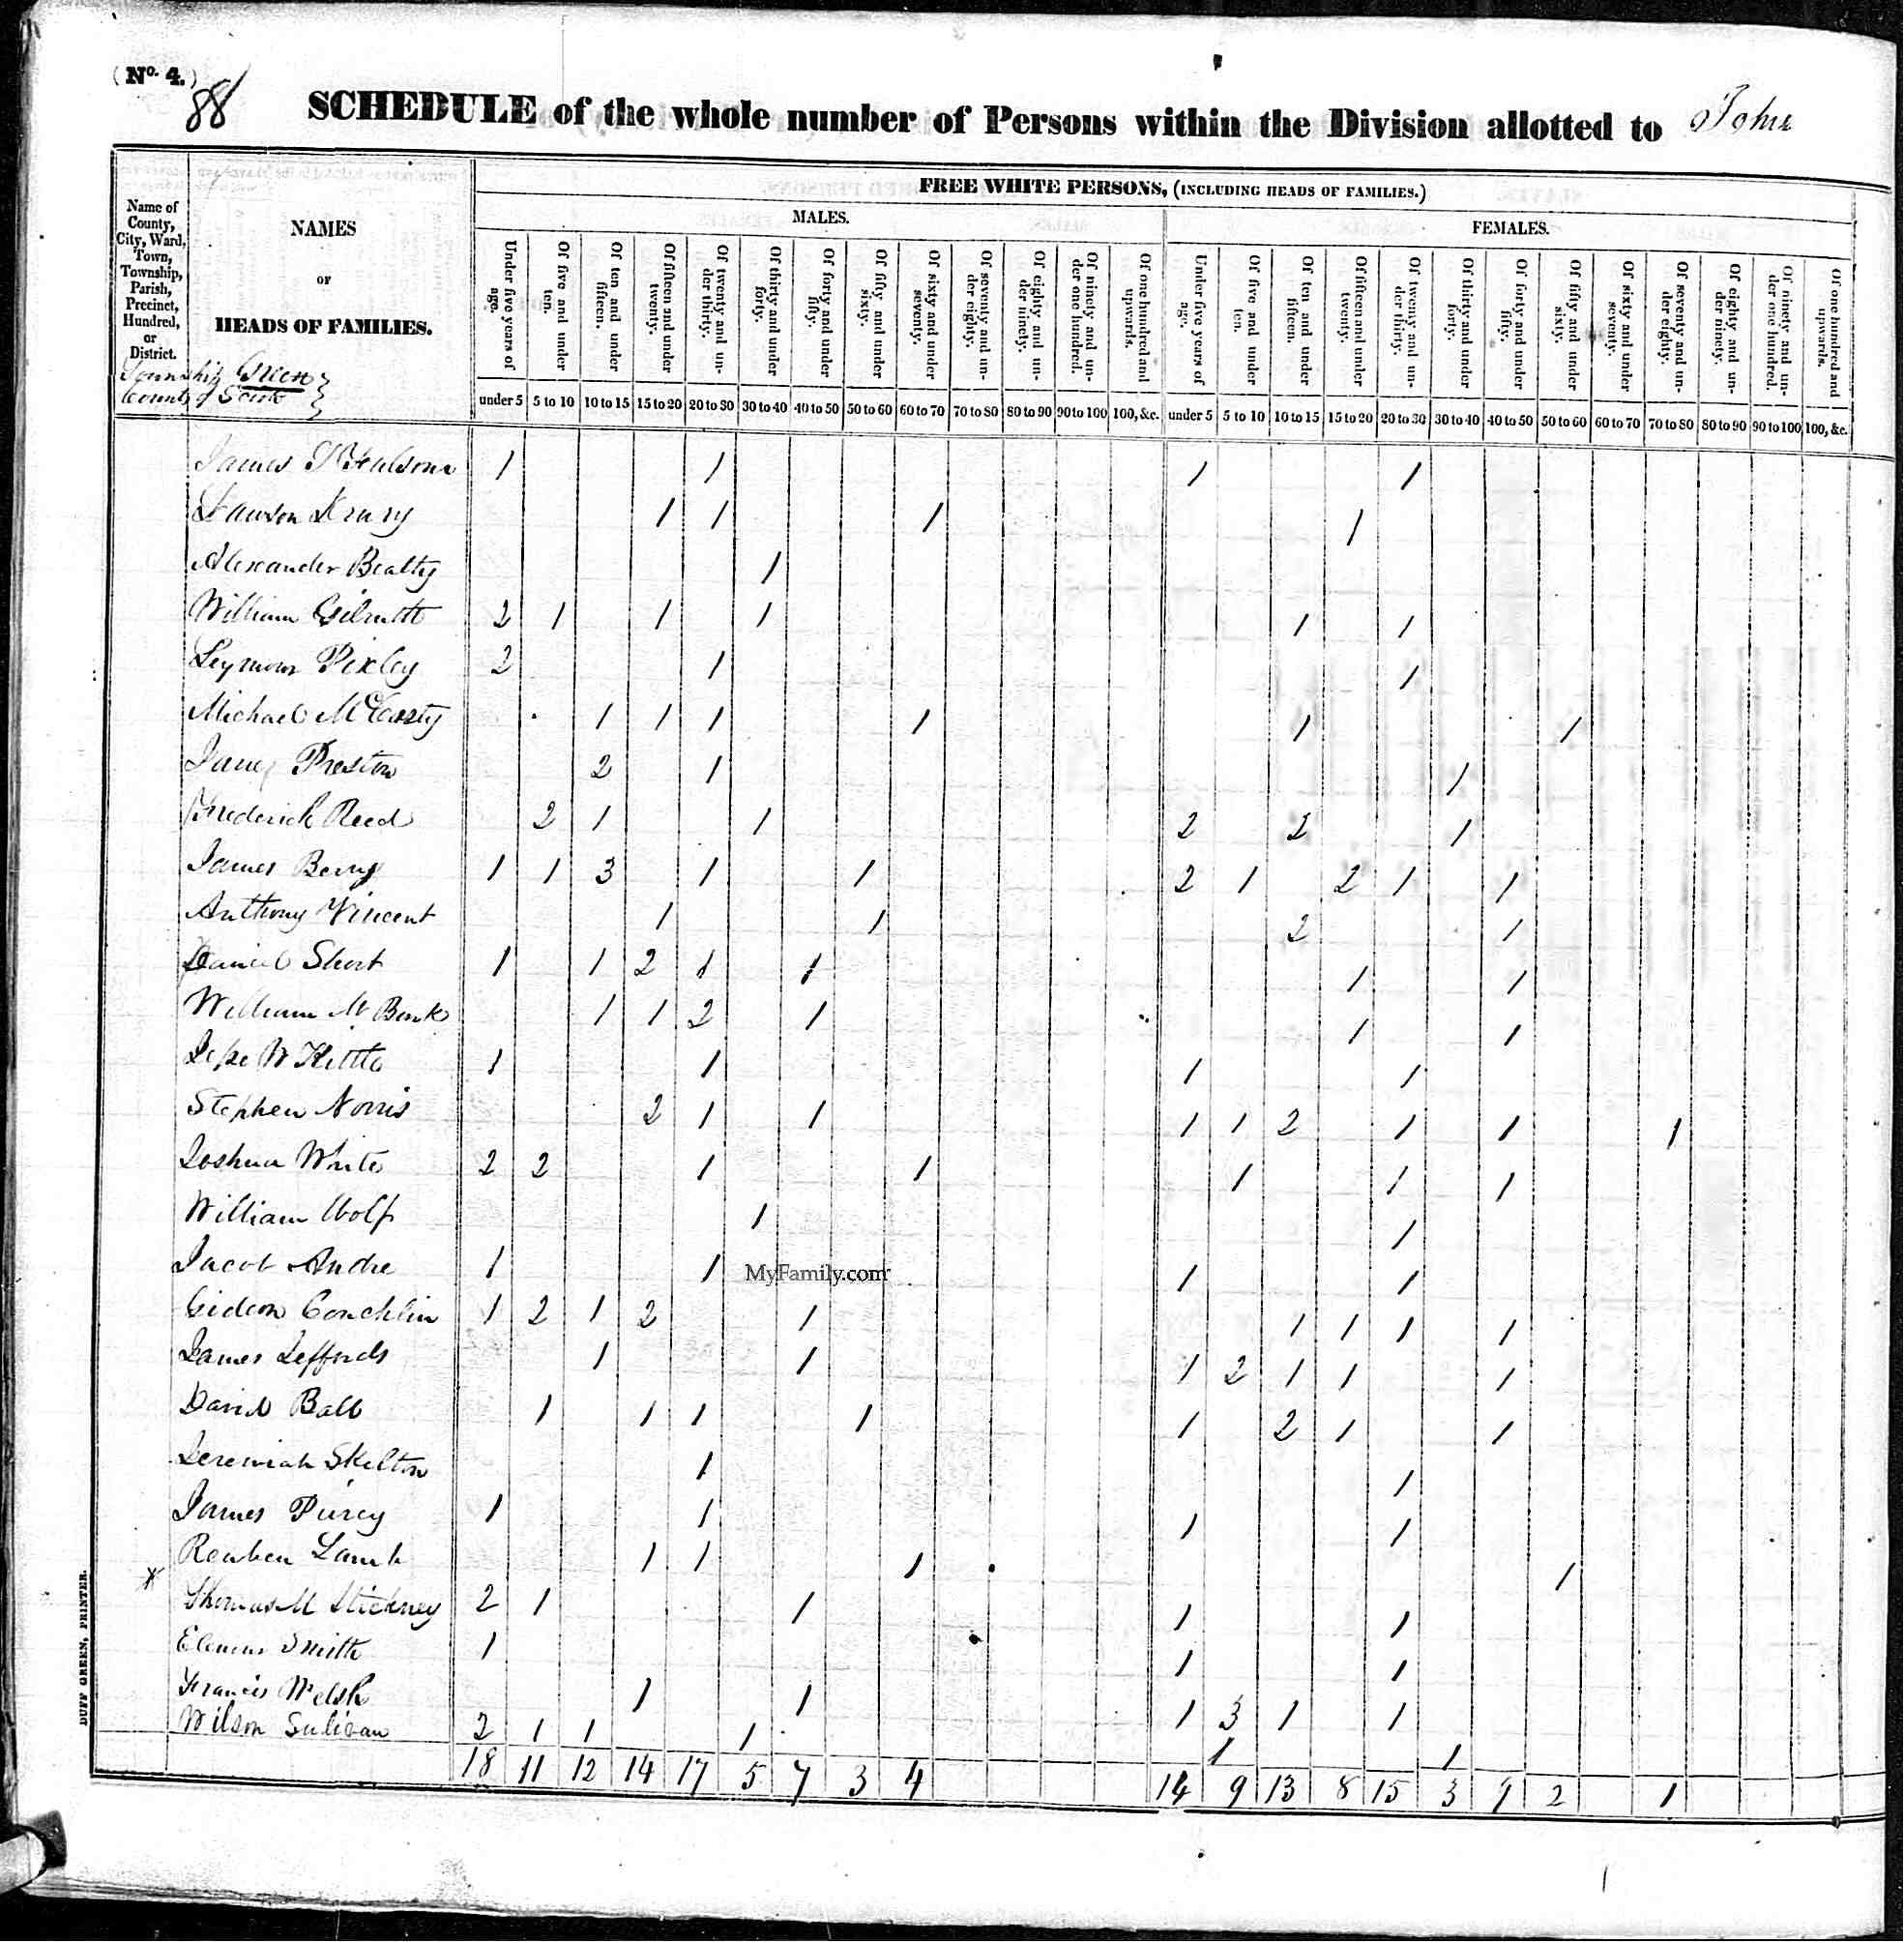 (No. 4.)
88
SCHEDULE of the whole number of Persons within the Division allotted to John
Name of County, City, Ward, Town, Township, Parish, Precinct, Hundred, or District.
NAMES
OF
HEADS OF FAMILIES.
Township Green
County of Scioto
FREE WHITE PERSONS, (INCLUDING HEADS OF FAMILIES.)
MALES. FEMALES.
Under five years of age. Of five and under ten. Of ten and under fifteen. Of fifteen and under twenty. Of twenty and under thirty. Of thirty and under forty. Of forty and under fifty. Of fifty and under sixty. Of sixty and under seventy. Of seventy and under eighty. Of eighty and under ninety. Of ninety and under one hundred. Of one hundred and upwards. Under five years of age. Of five and under ten. Of ten and under fifteen. Of fifteen and under twenty. Of twenty and under thirty. Of thirty and under forty. Of forty and under fifty. Of fifty and under sixty. Of sixty and under seventy. Of seventy and under eighty. Of eighty and under ninety. Of ninety and under one hundred. Of one hundred and upwards.
under 5 5 to 10 10 to 15 15 to 20 20 to 30 30 to 40 40 to 50 50 to 60 60 to 70 70 to 80 80 to 90 90 to 100 100, &c. under 5 5 to 10 10 to 15 15 to 20 20 to 30 30 to 40 40 to 50 50 to 60 60 to 70 70 to 80 80 to 90 90 to 100 100, &c.
James 1 1 1 1
Lawson Drury 1 1 1 1
Alexander Beatty 1
William Gilruth 2 1 1 1 1 1
Seymour Pixley 2 1 1
Michael McCarty 1 1 1 1 1 1
Preston 2 1 1
Frederick Reed 2 1 1 2 2 1
James Berry 1 1 3 1 1 2 1 2 1 1
Anthony Vincent 1 1 2 1
Daniel Short 1 1 2 1 1 1 1
William Mc Bonks 1 1 2 1 1 1
Jesse W Kittle 1 1 1 1
Stephen Norris 2 1 1 1 1 2 1 1 1
Joshua White 2 2 1 1 1 1 1
William Wolf 1 1
Jacob Andre 1 1 1 1
MyFamily.com
Gideon Conchlin 1 2 1 2 1 1 1 1 1
James Jeffords 1 1 1 2 1 1 1
David Ball 1 1 1 1 1 2 1 1
Jeremiah Skelton 1 1
James Piercy 1 1 1 1
Reuben Lamb 1 1 1 1
Thomas M Stickney 2 1 1 1 1
Smith 1 1 1
Francis Welsh 1 1 1 3 1 1
Wilson Sulivan 2 1 1 1 1 1
18 11 12 14 17 5 7 3 4 14 9 13 8 15 3 9 2 1
DUFF GREEN, PRINTER.